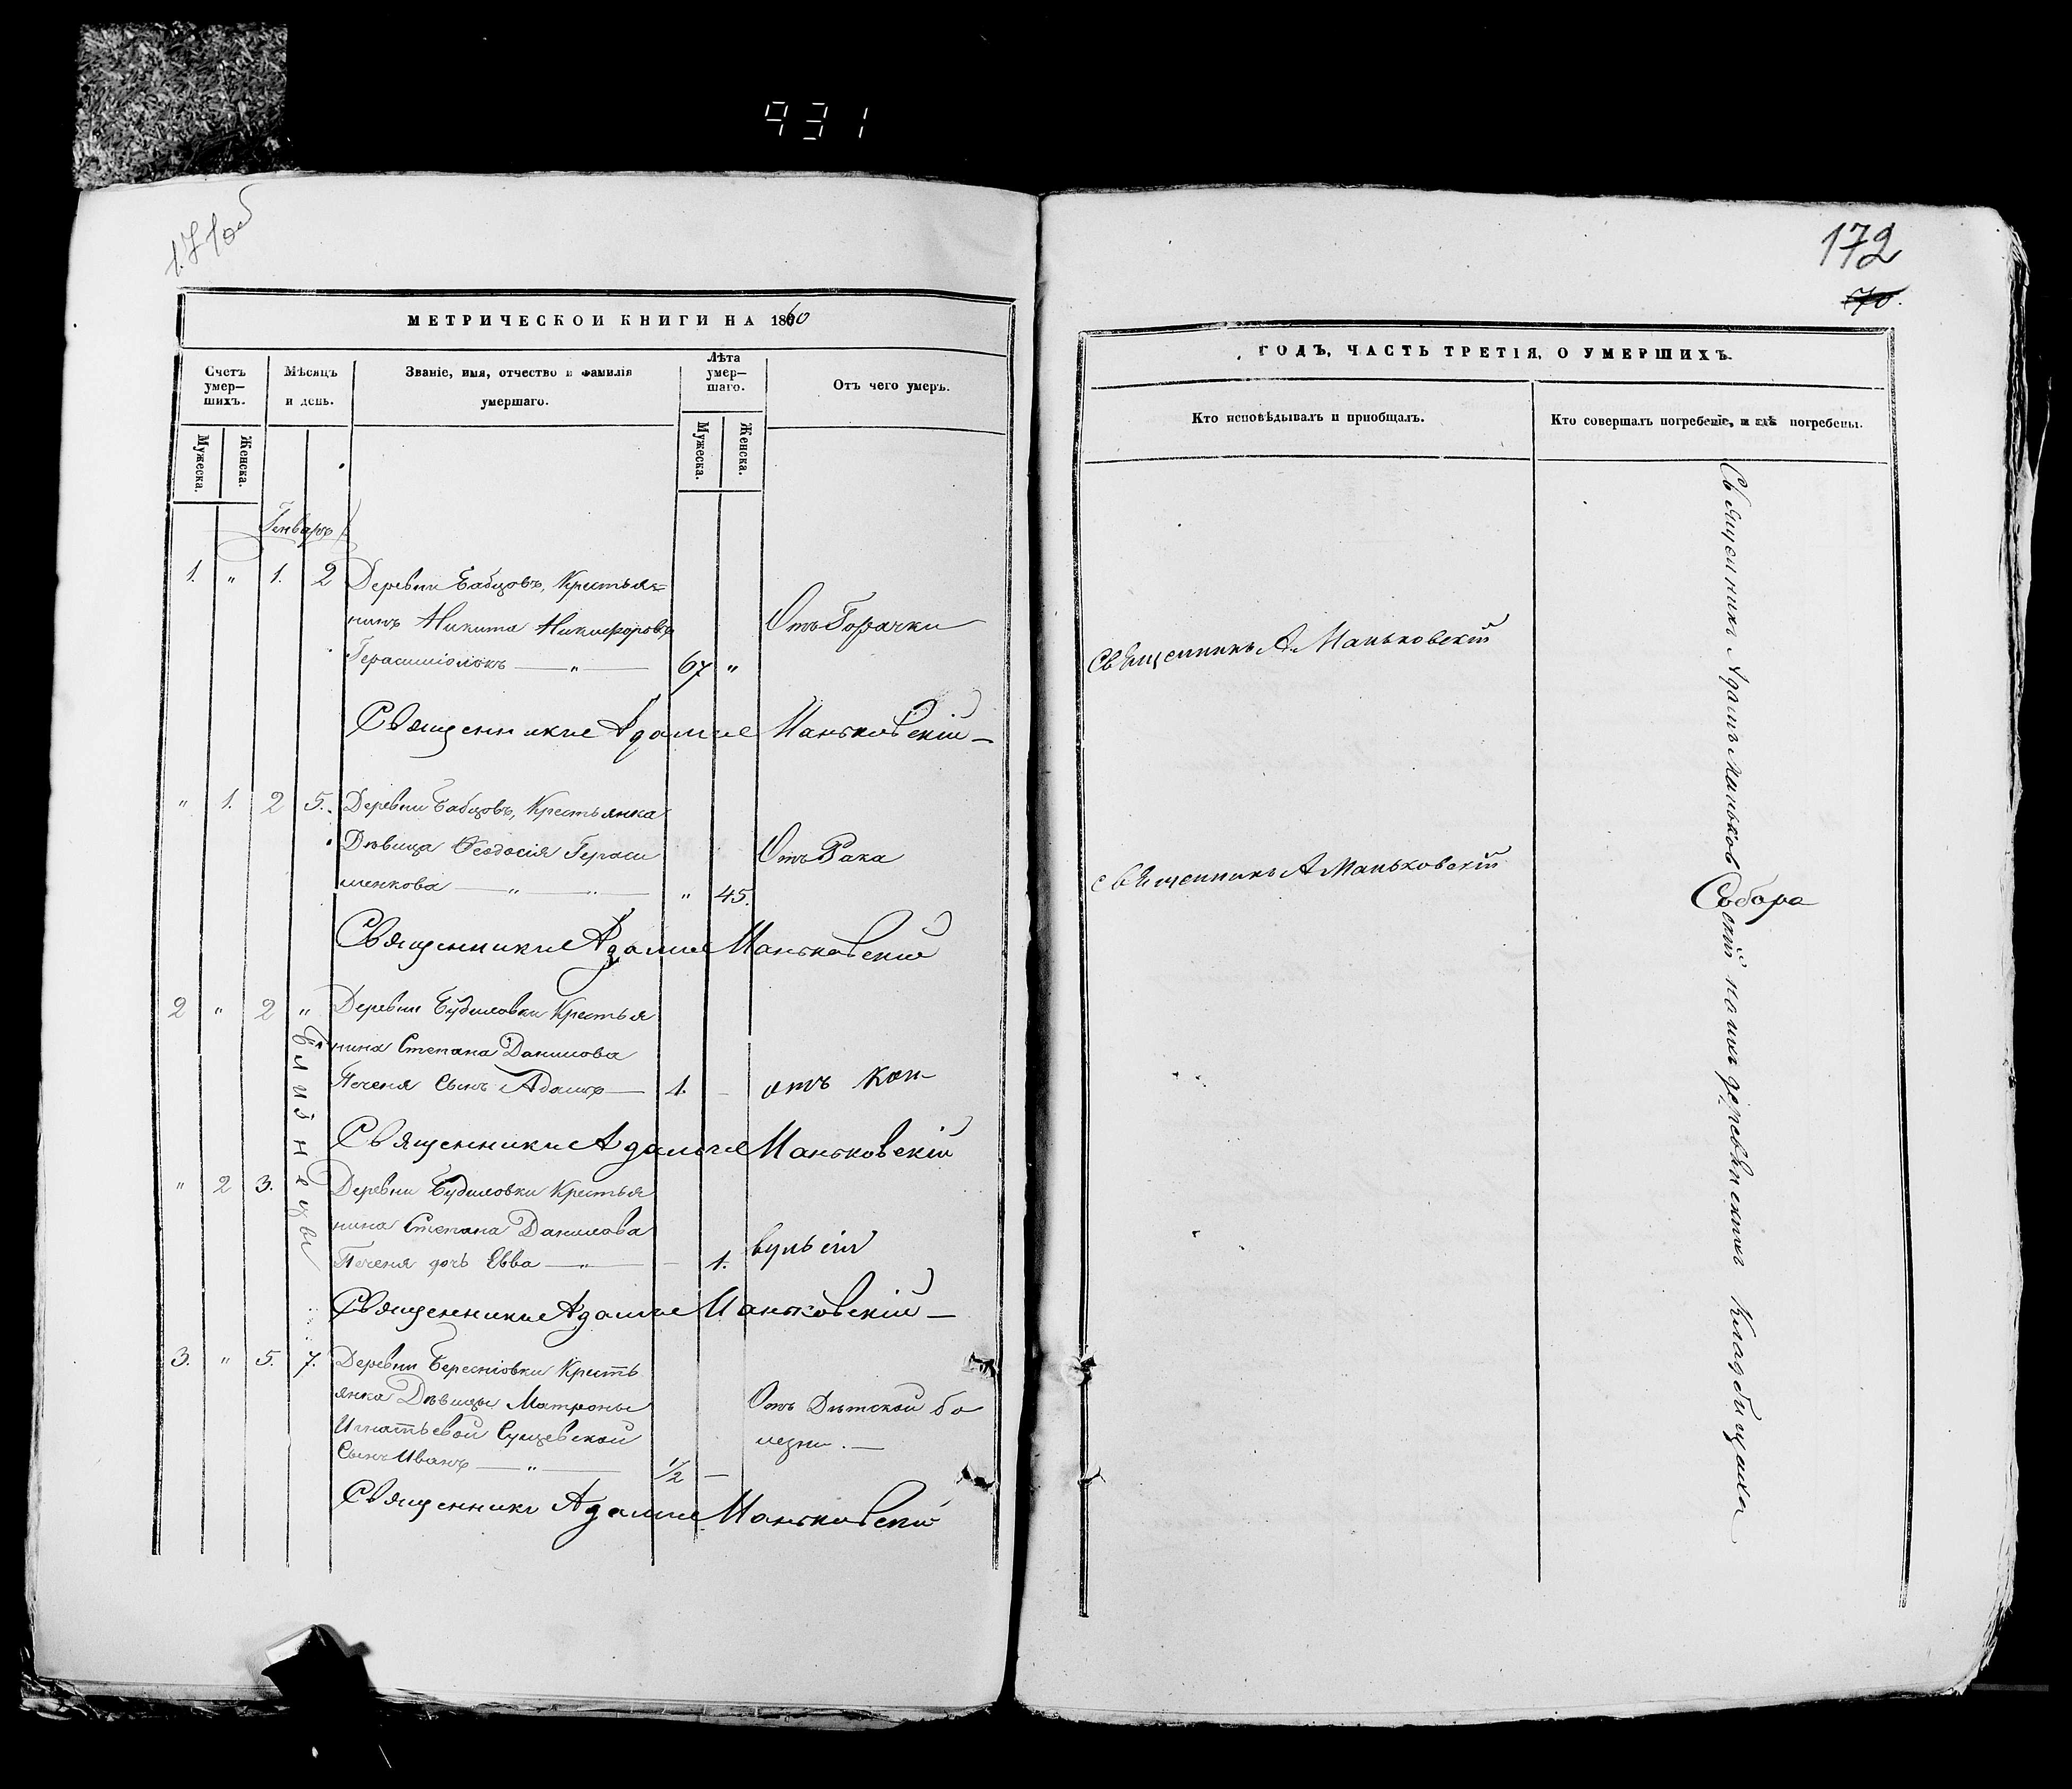 931
171об
МЕТРИЧЕСКОЙ КНИГИ НА 1860
Счетъ умер-
шихъ.
Мѣсяцъ
и день.
Званіе, имя, отчество и фамилія
умершаго.
Лѣта
умер-
шаго.
Отъ чего умеръ.
Мужеска.
Женска.
Мужеска.
Женска.
Генварь
1. " 1. 2 Деревни Бабцовъ, Крестья=
нинъ Никита Никифоровъ Отъ Горячки
Герасиміонокъ — " — 67 "
Священникъ Адамъ Маньковскій
" 1. 2 5. Деревни Бабцовъ, Крестьянка
Дѣвица Феодосія Гераси Отъ Рака
менкова — " — " — " 45.
Священникъ Адамъ Маньковскій
2 " 2 " Деревни Будиловки Крестья
нина Степана Данилова
Печеня Сынъ Адамъ — 1. — отъ кон
Священникъ Адамъ Маньковскій
близнецы
" 2 3. Деревни Будиловки Крестья
нина Степана Данилова
Печеня дочь Евва — " — — 1. вульсіи
Священникъ Адамъ Маньковскій —
3. " 5. 7. Деревни Бересніовки Кресть
янка Дѣвицы Матроны Отъ Дѣтской бо
Игнатьевой Сущевской лезни. —
Сынъ Иванъ — " — 1/2 —
Священникъ Адамъ Маньковскій
172
70.
ГОДЪ, ЧАСТЬ ТРЕТІЯ, О УМЕРШИХЪ.
Кто исповѣдывалъ и пріобщалъ.
Кто совершалъ погребеніе, и гдѣ погребены.
Священникъ А Маньковскій
Священникъ А Маньковскій
Священникъ Адамъ Маньковскій на ихъ деревенскихъ Кладбищахъ
Собора